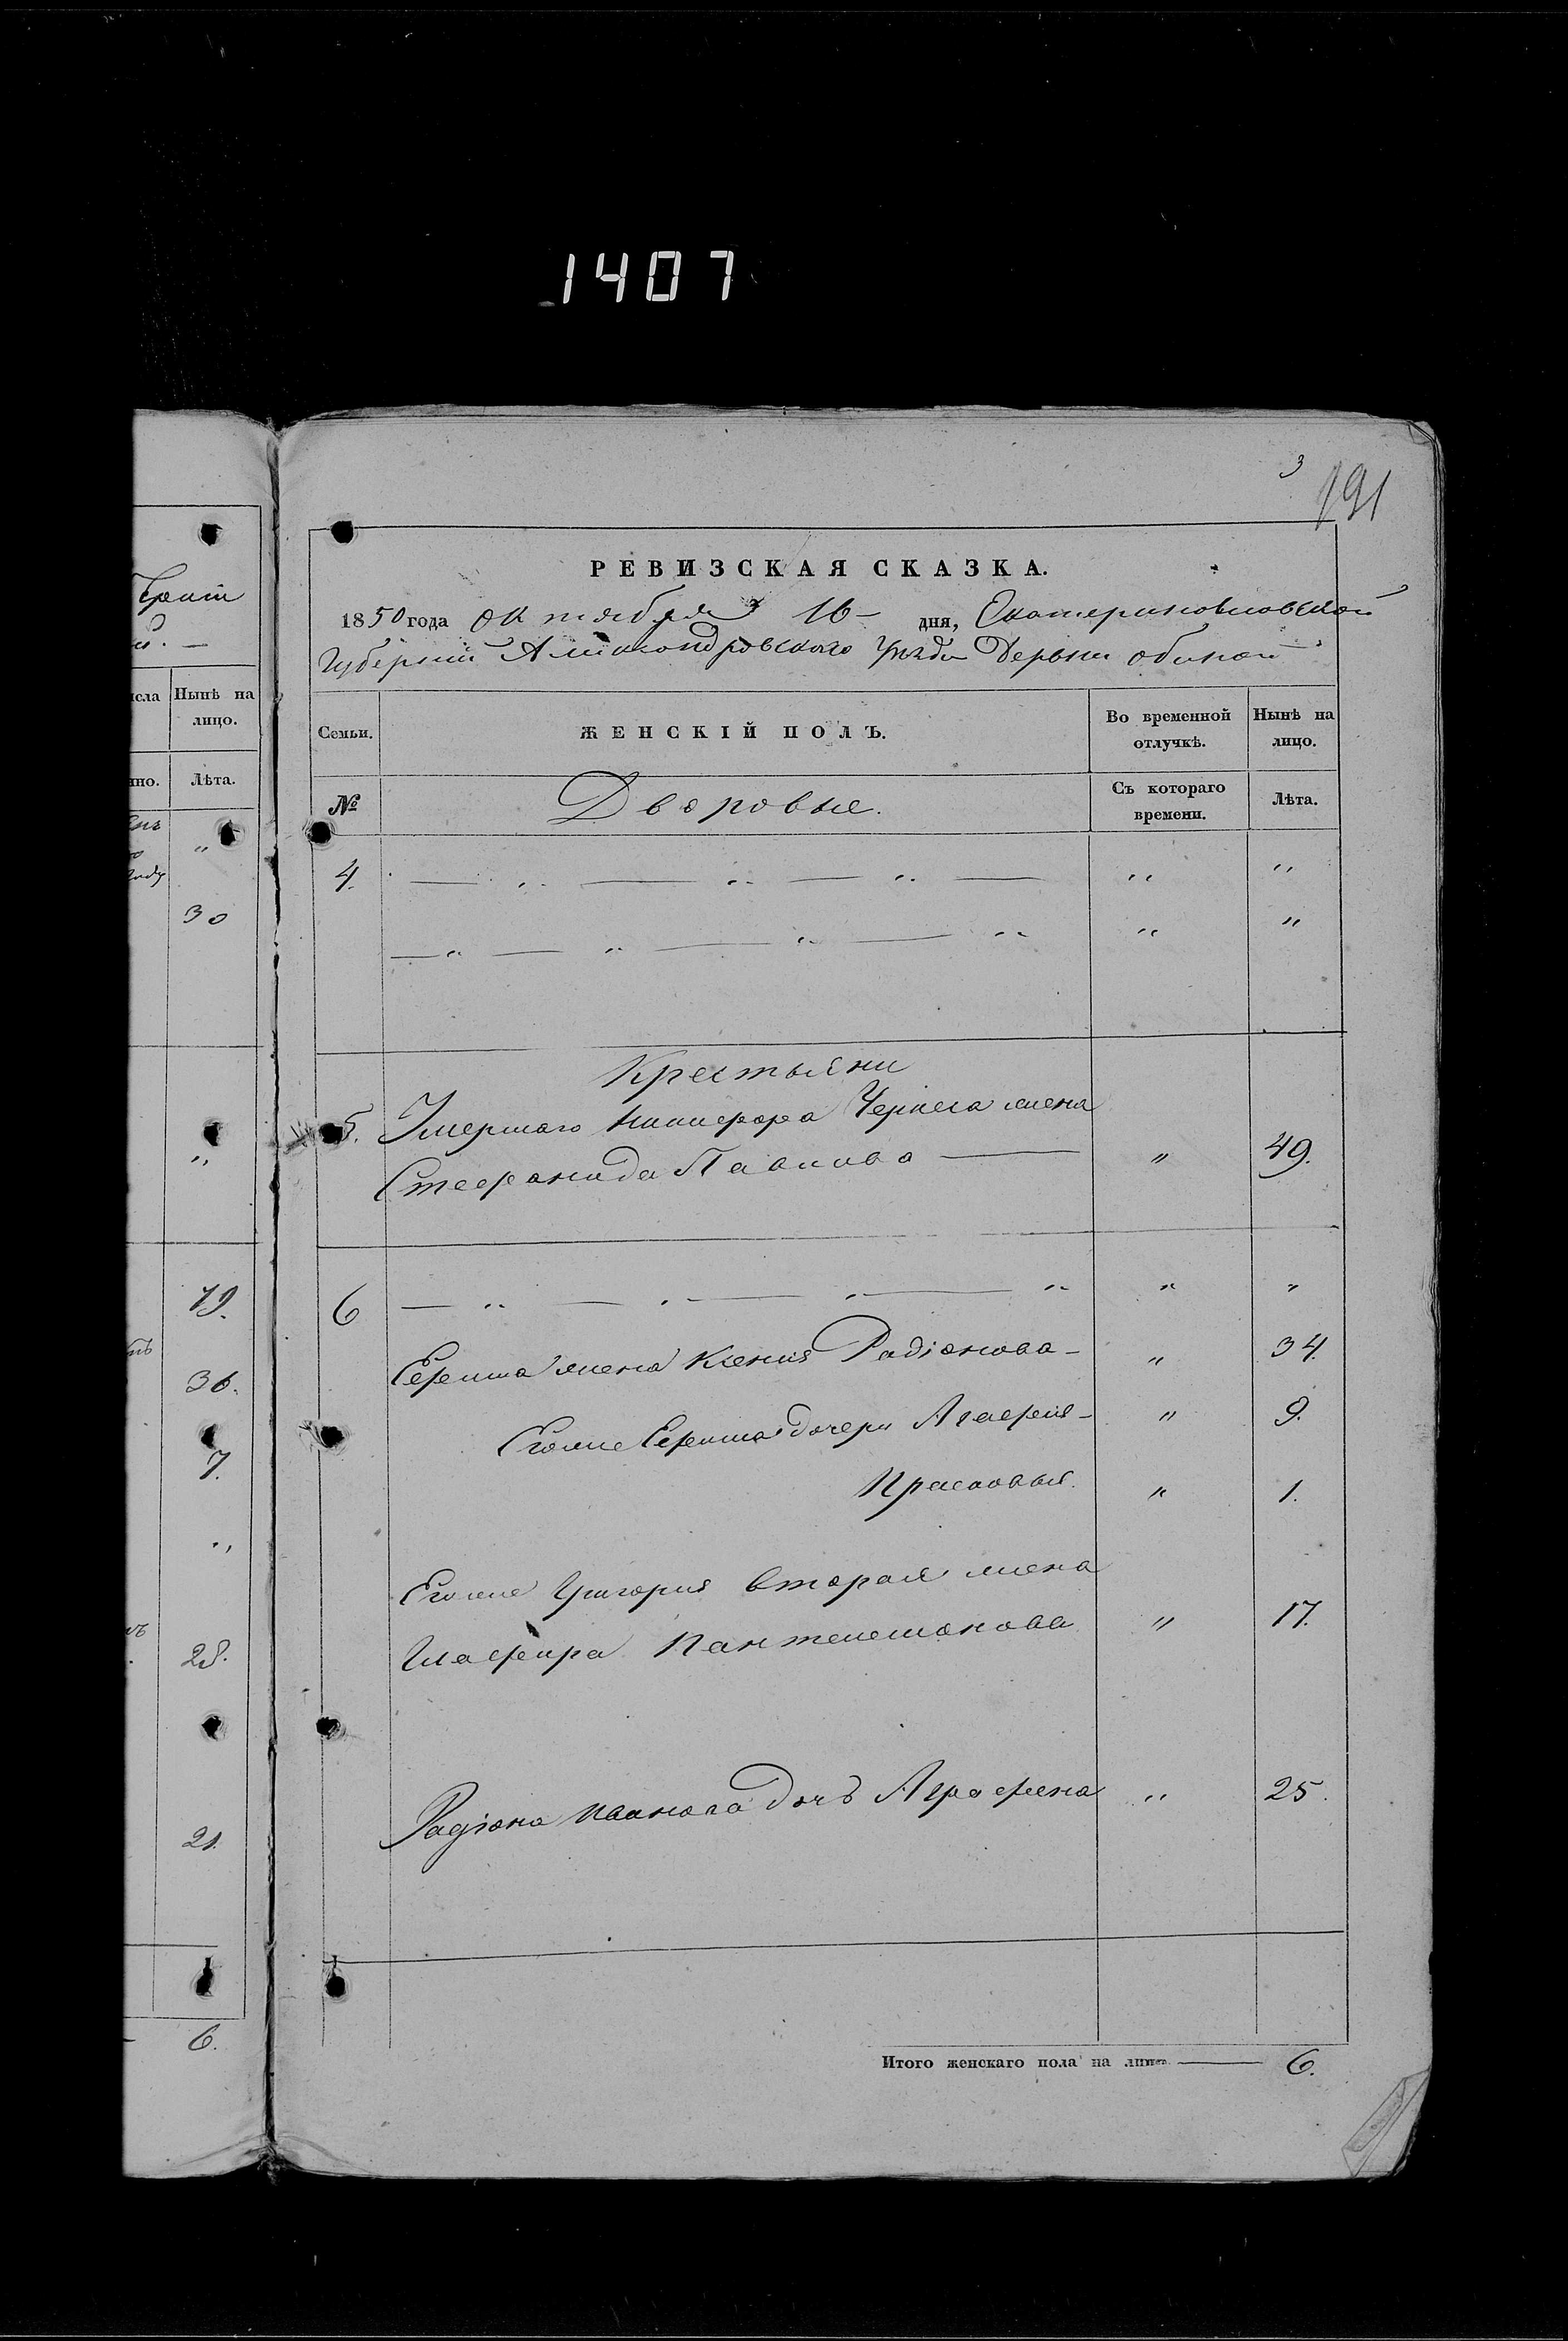 1407
Нынѣ на
лицо.
Лѣта.
30
19.
36.
7.
28.
21.
6.
3
191
РЕВИЗСКАЯ СКАЗКА.
1850 года октября 16 – дня, Екатеринославской
Губернии Александровского Уезда Деревни
Семьи. ЖЕНСКІЙ ПОЛЪ. Во временной отлучкѣ. Нынѣ на лицо.
№ Дворовые. Съ котораго времени. Лѣта.
4. — „ — „ — „ — „ „
— „ — „ — „ — „ „ „
Крестьяни
5. Умершаго Никифора жена
Стефанида Павлова — „ 49.
6 — „ — „ — „ — „ „ „
Сефина жена Ксения Радіонова – „ 34.
Егоже дочери Агафия – „ 9.
Прасковья. „ 1.
Егоже Григория вторая жена
Глафира Пантелемонова „ 17.
Радіона дочь Аграфена „ 25.
Итого женскаго пола на лицо — 6.